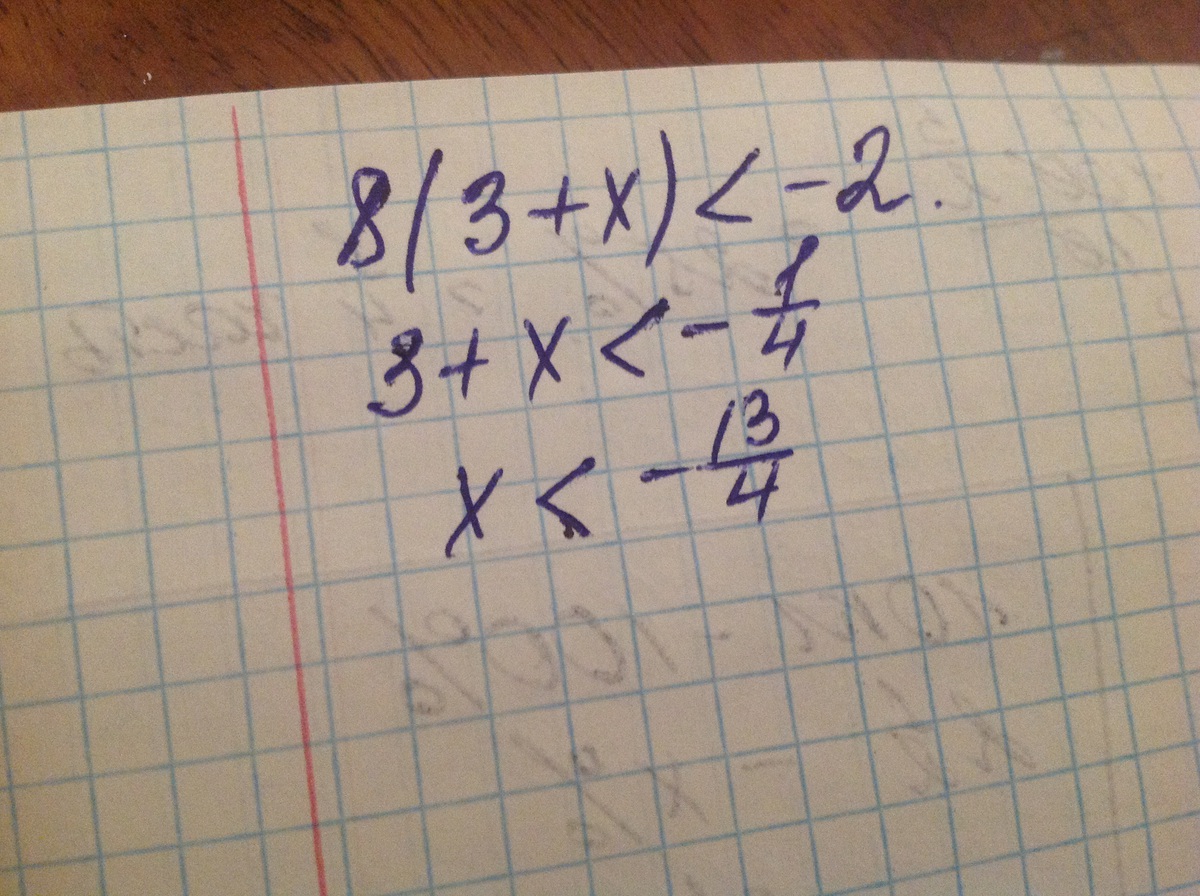 8(3+x)<-2.
3+x<-1/4
x<-13/4